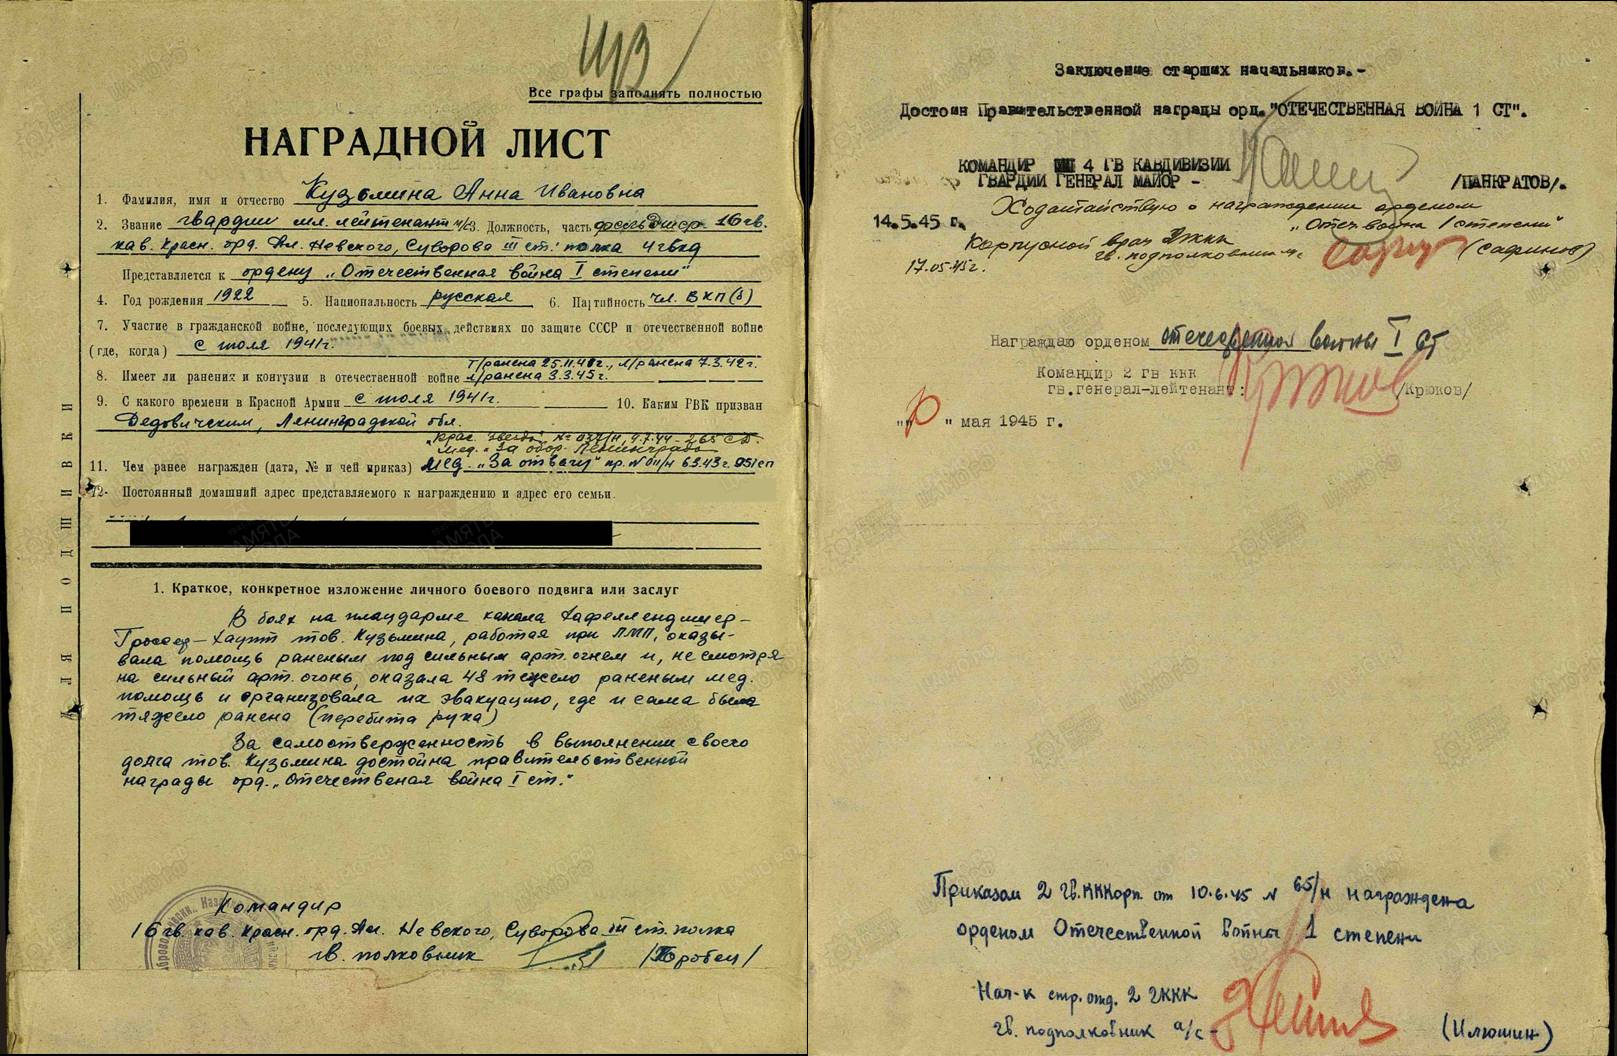 Все графы заполнять полностью
НАГРАДНОЙ ЛИСТ
1. Фамилия, имя и отчество Кузьмина Анна Ивановна
2. Звание гвардии мл. лейтенант м/с 3. Должность, часть фельдшер 16 гв.
кав. Красн. орд. Ал. Невского, Суворова III ст. полка 4 гвкд
Представляется к ордену „Отечественная война I степени"
4. Год рождения 1922 5. Национальность русская 6. Партийность чл. ВКП(б)
7. Участие в гражданской войне, последующих боевых действиях по защите СССР и отечественной войне
(где, когда) с июля 1941г.
т/ранена 25.11.41г., л/ранена 7.3.42г.
8. Имеет ли ранения и контузии в отечественной войне л/ранена 3.3.45г.
9. С какого времени в Красной Армии с июля 1941г. 10. Каким РВК призван
Дедовичским, Ленинградской обл.
„Крас. звезда" № 037/н, 4.7.44 - 265 СД.
мед. „За обор. Ленинграда
11. Чем ранее награжден (дата, № и чей приказ) мед. „За отвагу" пр. № 011/н 6.3.43г. 951 сп
12- Постоянный домашний адрес представляемого к награждению и адрес его семьи.
ДЛЯ ПОДШИВКИ
1. Краткое, конкретное изложение личного боевого подвига или заслуг
В боях на плацдарме канала Хафеллендишер-
Гроссер-Хаупт тов. Кузьмина, работая при ПМП, оказы-
вала помощь раненым под сильным арт. огнем и, не смотря
на сильный арт. огонь, оказала 48 тяжело раненым мед.
помощь и организовала их эвакуацию, где и сама была
тяжело ранена (перебита рука)
За самоотверженность в выполнении своего
долга тов. Кузьмина достойна правительственной
награды орд. „Отечественая война I ст."
Командир
16 гв. кав. Красн. орд. Ал. Невского, Суворова III ст. полка
гв. полковник /Коробен/
Заключение старших начальников.-
Достоин Правительственной награды орд. "ОТЕЧЕСТВЕННАЯ ВОЙНА 1 СТ".
КОМАНДИР 4 ГВ КАВДИВИЗИИ
ГВАРДИИ ГЕНЕРАЛ МАЙОР - /ПАНКРАТОВ/.
14.5.45 г.
Ходатайствую о награждении орденом
„Отеч. война 1 степени"
Корпусной врач 2 гккк
гв. подполковник м/с (Сафинов)
17.05.45г.
Награждаю орденом отечественная войны I ст
Командир 2 гв ккк
гв.генерал-лейтенант: /Крюков/
" " мая 1945 г.
Приказом 2 гв. ККкорп. от 10.6.45 № 65/н награждена
орденом Отечественной войны 1 степени
Нач-к стр. отд. 2 гккк
гв. подполковник а/с - (Илюшин)